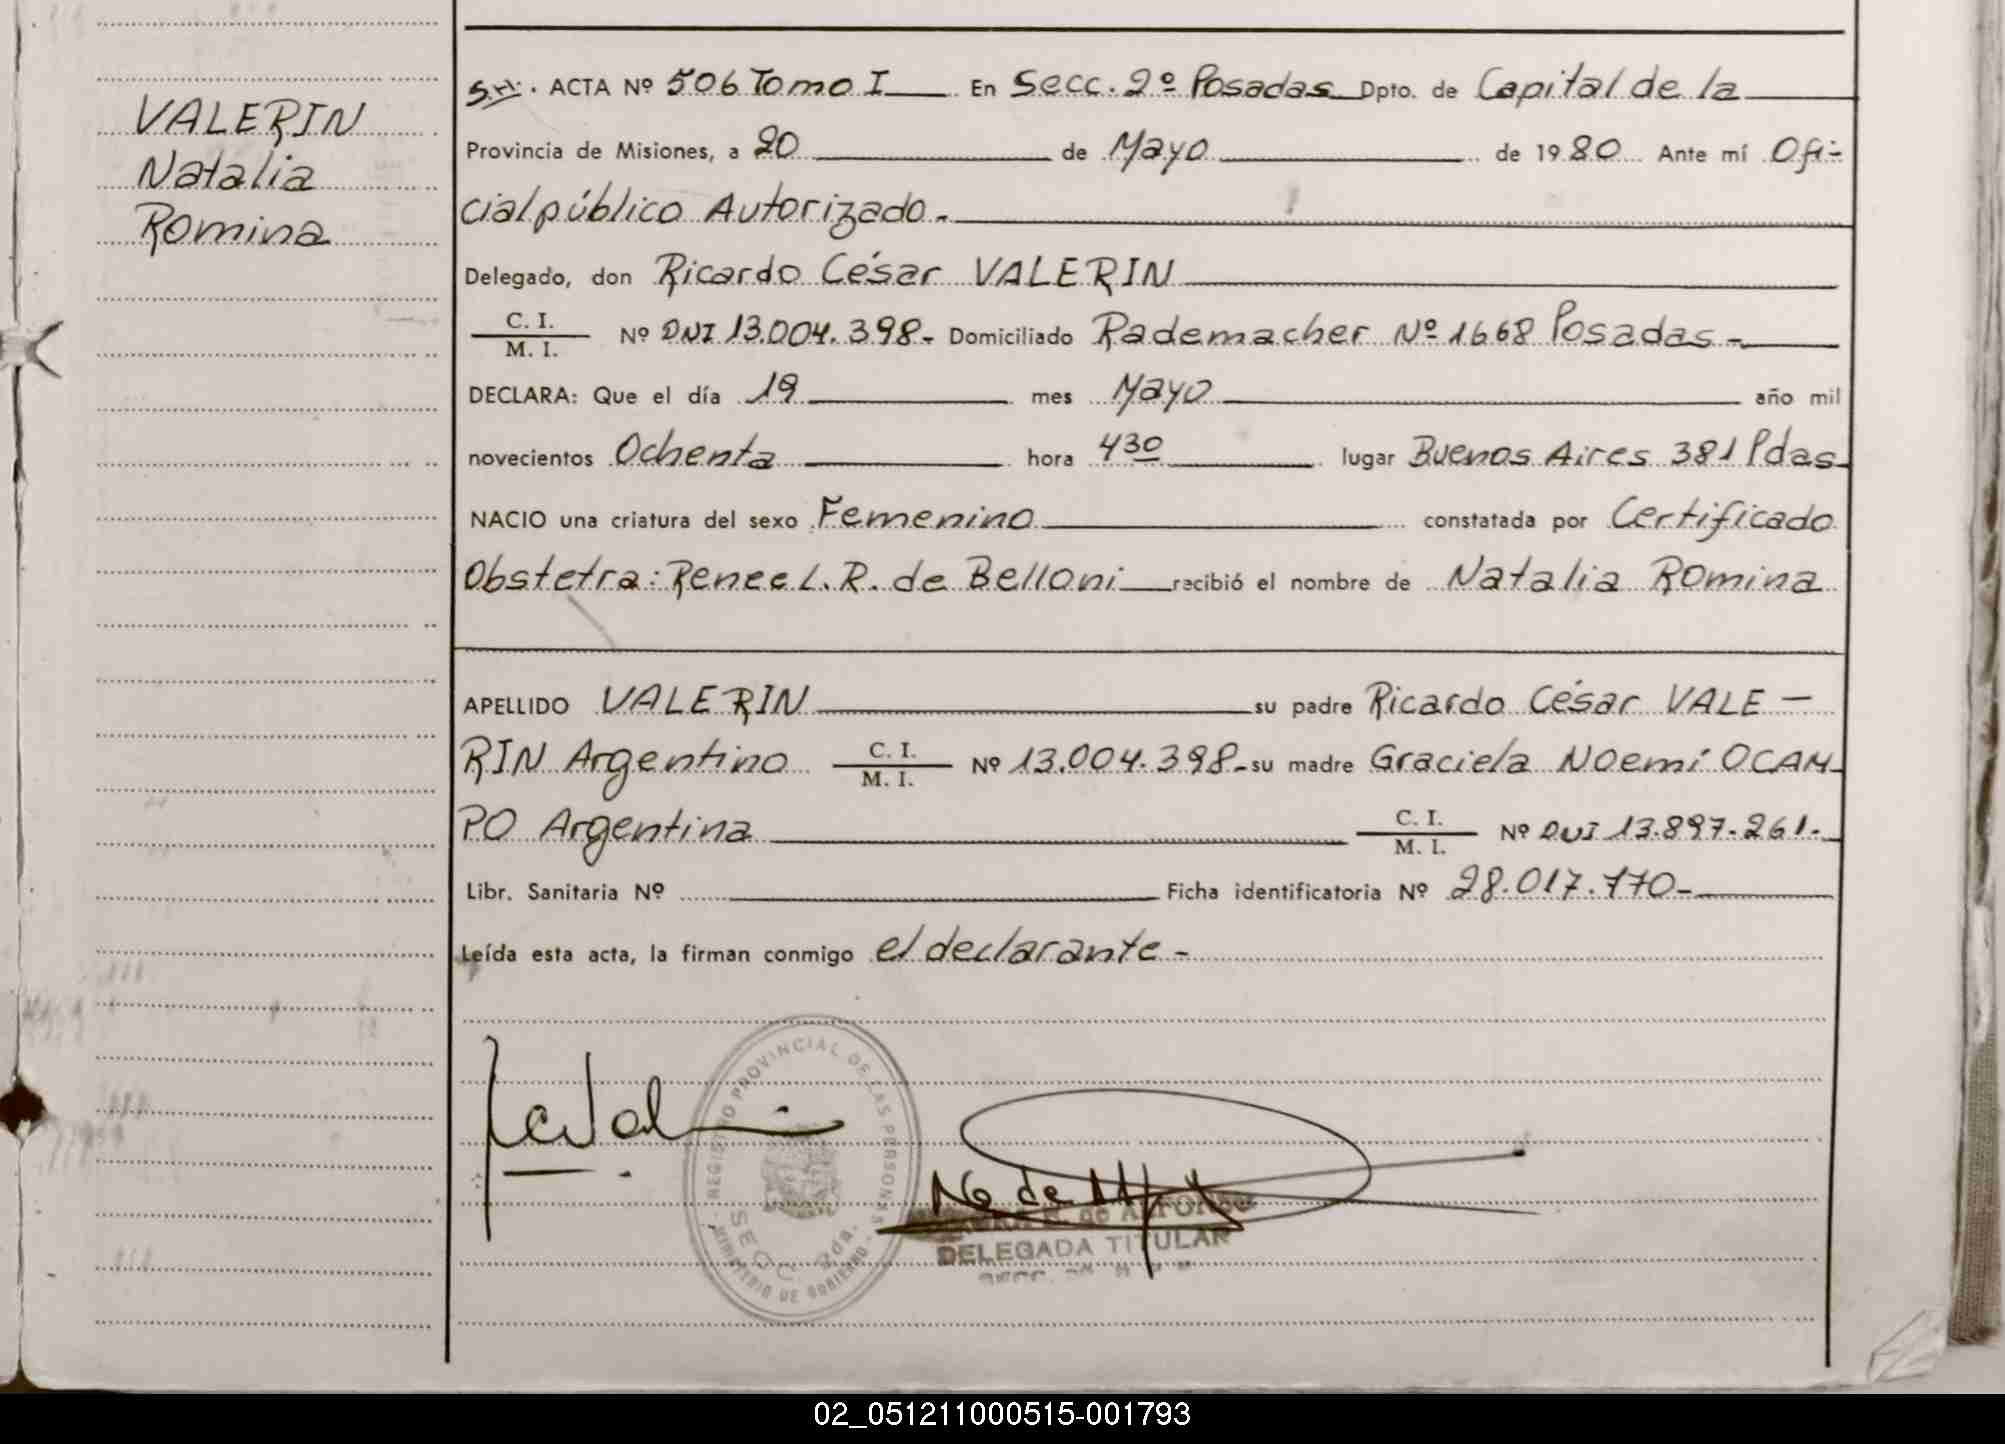 VALERIN
Natalia
Romina
ACTA Nº 506 Tomo I En Secc. 2º Posadas Dpto. de Capital de la
Provincia de Misiones, a 20 de Mayo de 1980 Ante mí Ofi-
cial público Autorizado.
Delegado, don Ricardo César VALERIN
C. I.
M. I. Nº DNI 13.004.398- Domiciliado Rademacher Nº 1668 Posadas-
DECLARA: Que el día 19 mes Mayo año mil
novecientos Ochenta hora 430 lugar Buenos Aires 381 Pdas
NACIO una criatura del sexo Femenino constatada por Certificado
Obstetra: Renee L. R. de Belloni recibió el nombre de Natalia Romina
APELLIDO VALERIN su padre Ricardo César VALE-
RIN Argentino C. I.
M. I. Nº 13.004.398- su madre Graciela Noemí OCAM-
PO Argentina C. I.
M. I. Nº DNI 13.897.261.-
Libr. Sanitaria Nº Ficha identificatoria Nº 28.017.770-
Leída esta acta, la firman conmigo el declarante-
REGISTRO PROVINCIAL DE LAS PERSONAS
SECC. 2da.
MINISTERIO DE GOBIERNO
de ALFONSO
DELEGADA TITULAR
02_051211000515-001793